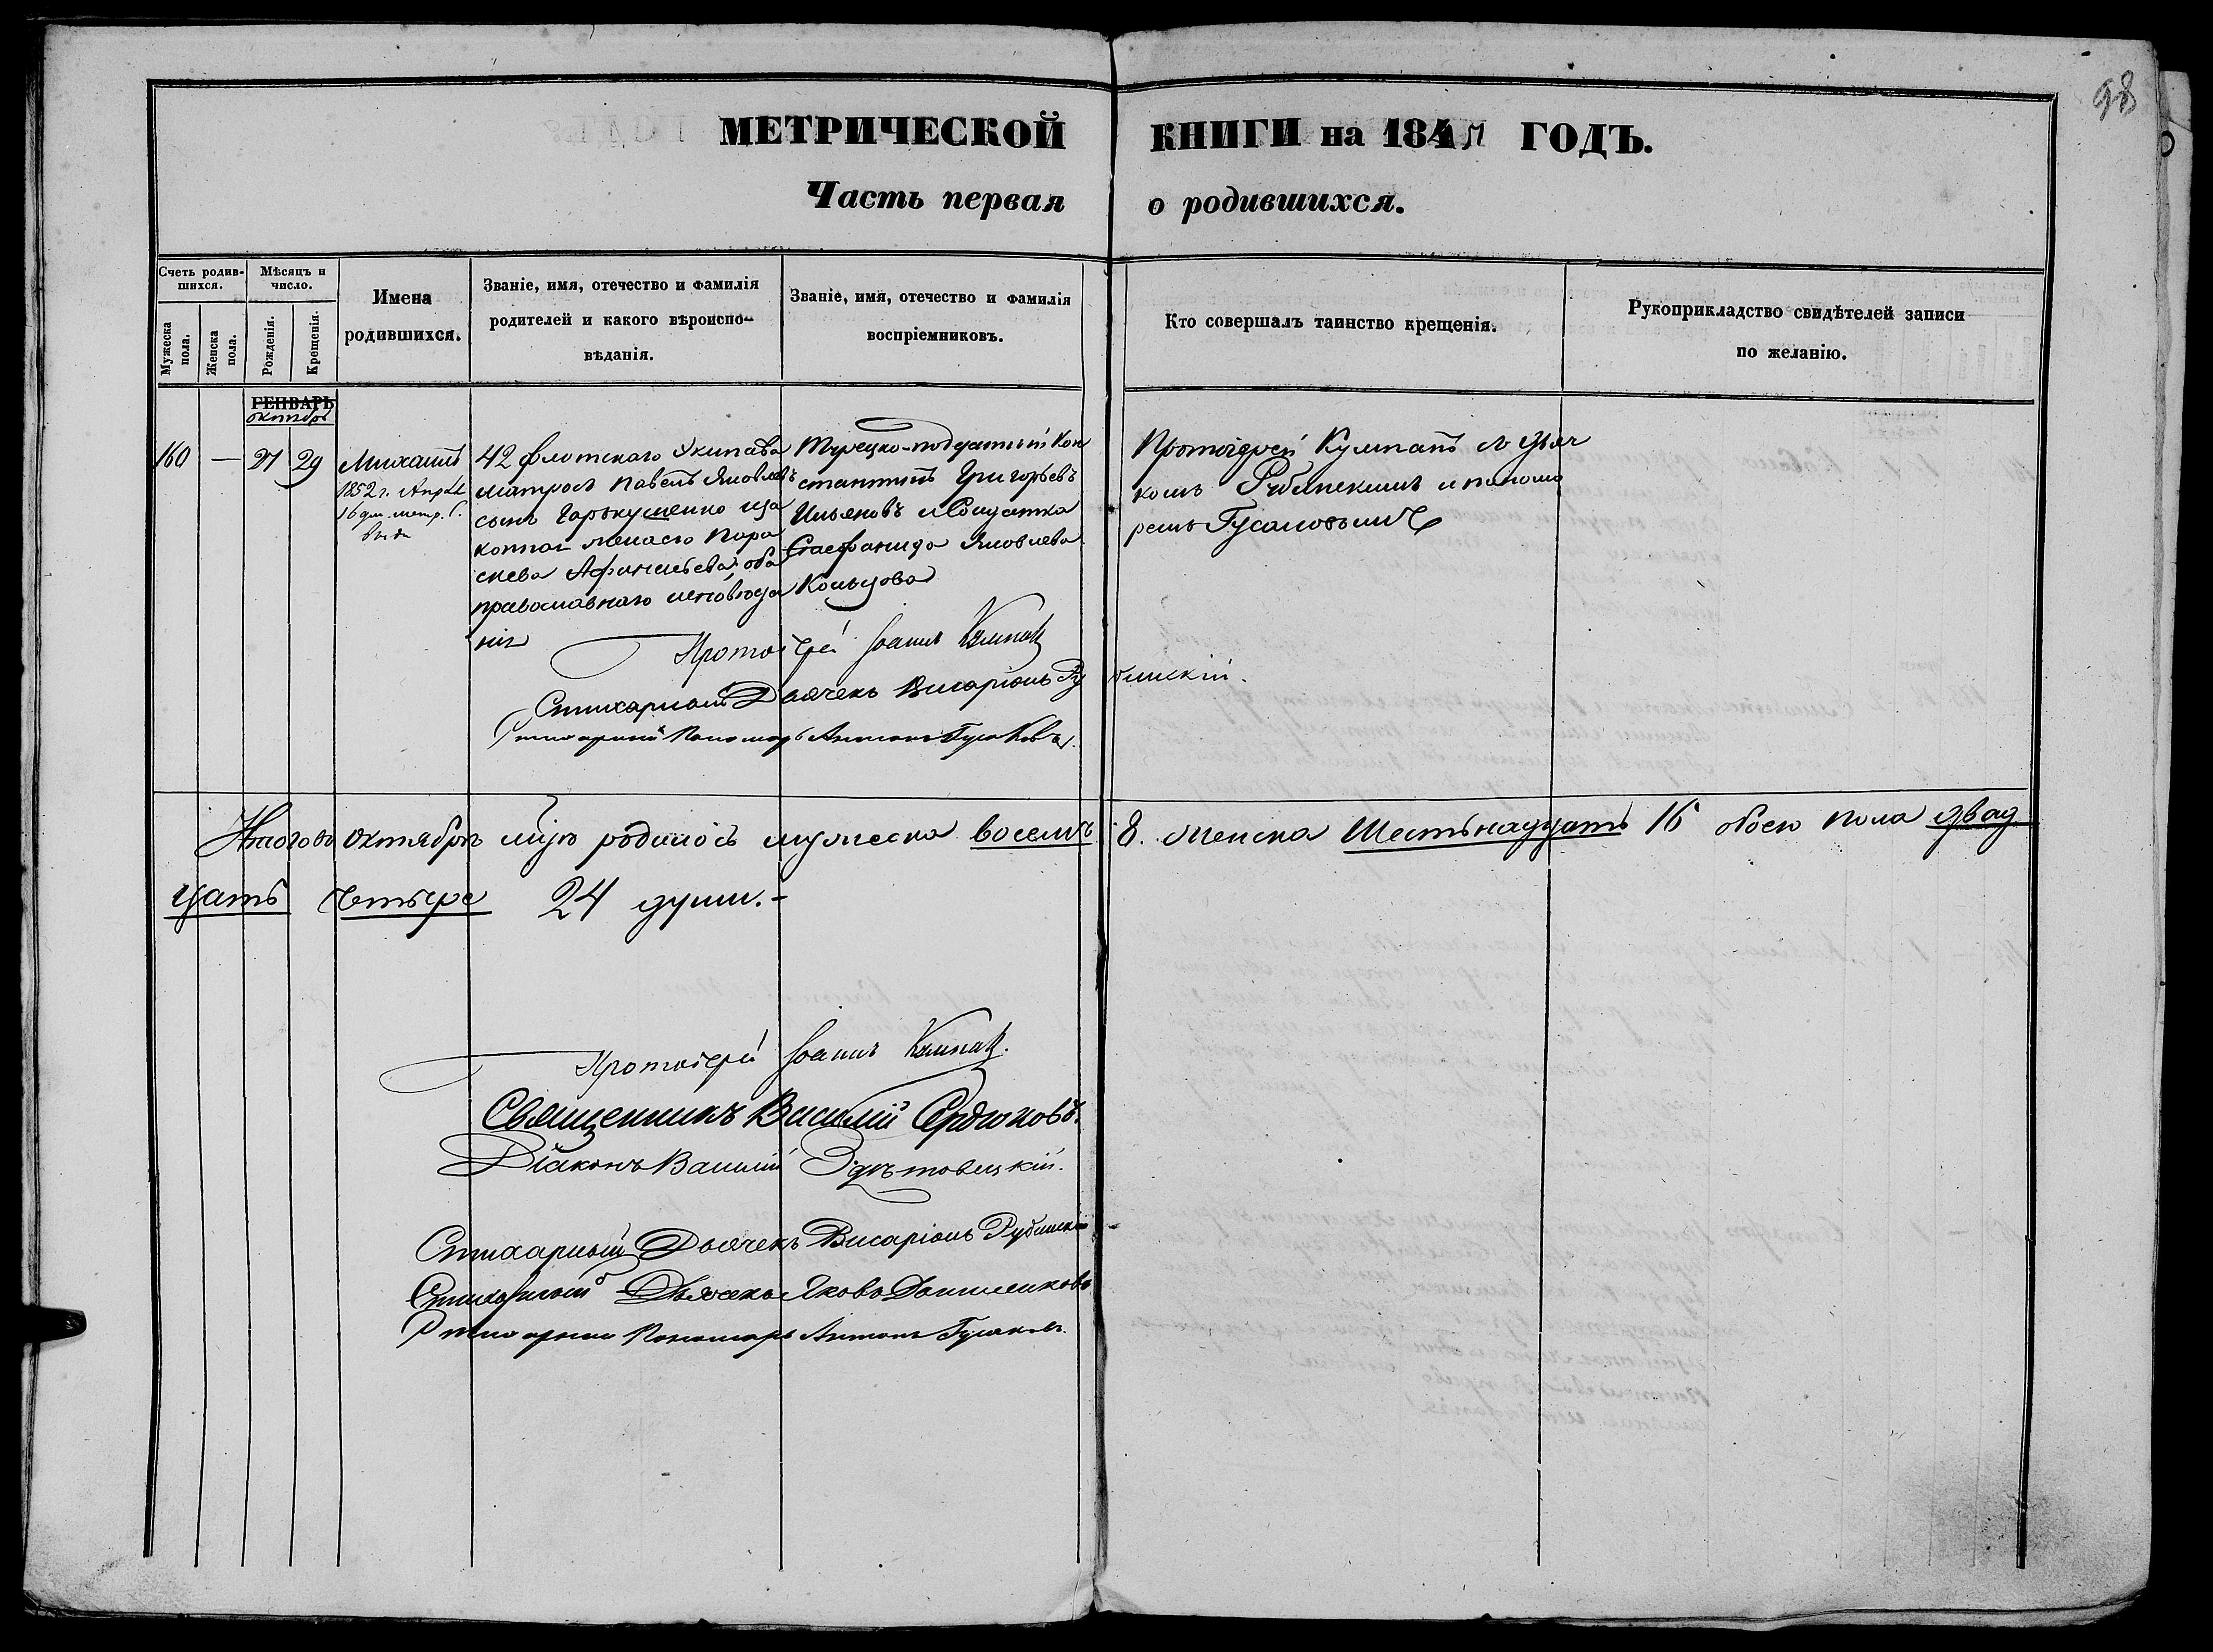 98
МЕТРИЧЕСКОЙ КНИГИ на 184 ГОДЪ.
Часть первая о родившихся.
Счетъ родив-
шихся.
Мужеска
пола.
Женска
пола.
Мѣсяцъ и
число.
Рожденія.
Крещенія.
Имена
родившихся.
Званіе, имя, отечество и фамилія
родителей и какого вѣроиспо-
вѣданія.
Званіе, имя, отечество и фамилія
воспріемниковъ.
Кто совершалъ таинство крещенія.
Рукоприкладство свидѣтелей записи
по желанію.
ГЕНВАРЬ
октябрь
160 — 27 29
Михаилъ
1852 г. Апрѣл
16 дня метр. С.
выда
42 флотскаго Экипажа
матросъ Павелъ Яковлевъ
сынъ Гарькушенко и за
конная жена его Пара
скева Афанасьева, оба
православнаго исповѣда
нія
Турецко-подданный Кон
стантинъ Григорьевъ
Ильяновъ и Солдатка
Стефанида Яковлева
Кольцова
Протоіерей Кумпанъ съ дьяч
комъ Рубинскимъ и понома
ремъ Гусаковымъ
Протоіерей Іоаннъ Кумпан
Стихарный Дьячекъ Висаріонъ Рубинскій.
Стихарный Пономарь Антонъ Гусаковъ.
Итого въ октябрѣ мцѣ родилось мужеска восемъ 8. женска Шестьнадцать 16 обоего пола двад
цать четыре 24 души. -
Протоіерей Іоаннъ Кумпан.
Священникъ Василій Сердюковъ.
Діаконъ Василій
Стихарный Дьячекъ Висаріонъ Рубинскій
Стихарный Дьячекъ Яковъ Данишенковъ
Стихарный Пономарь Антонъ Гусаковъ.